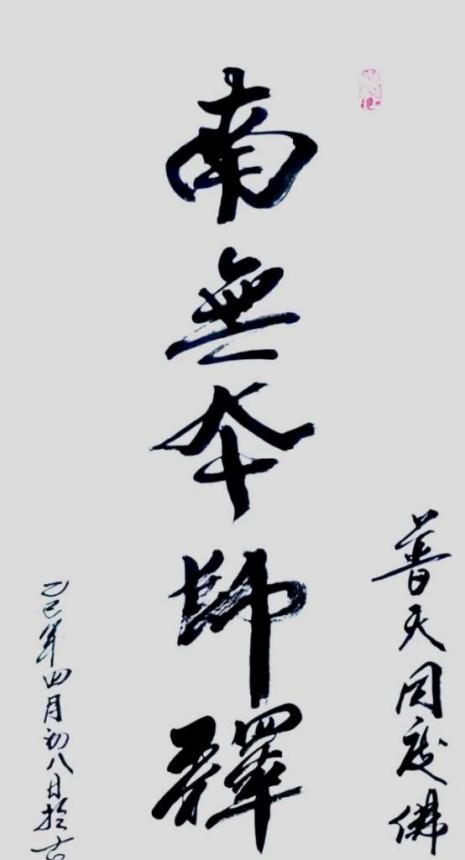 普天同慶佛
南無本師釋
乙巳年四月初八日於古